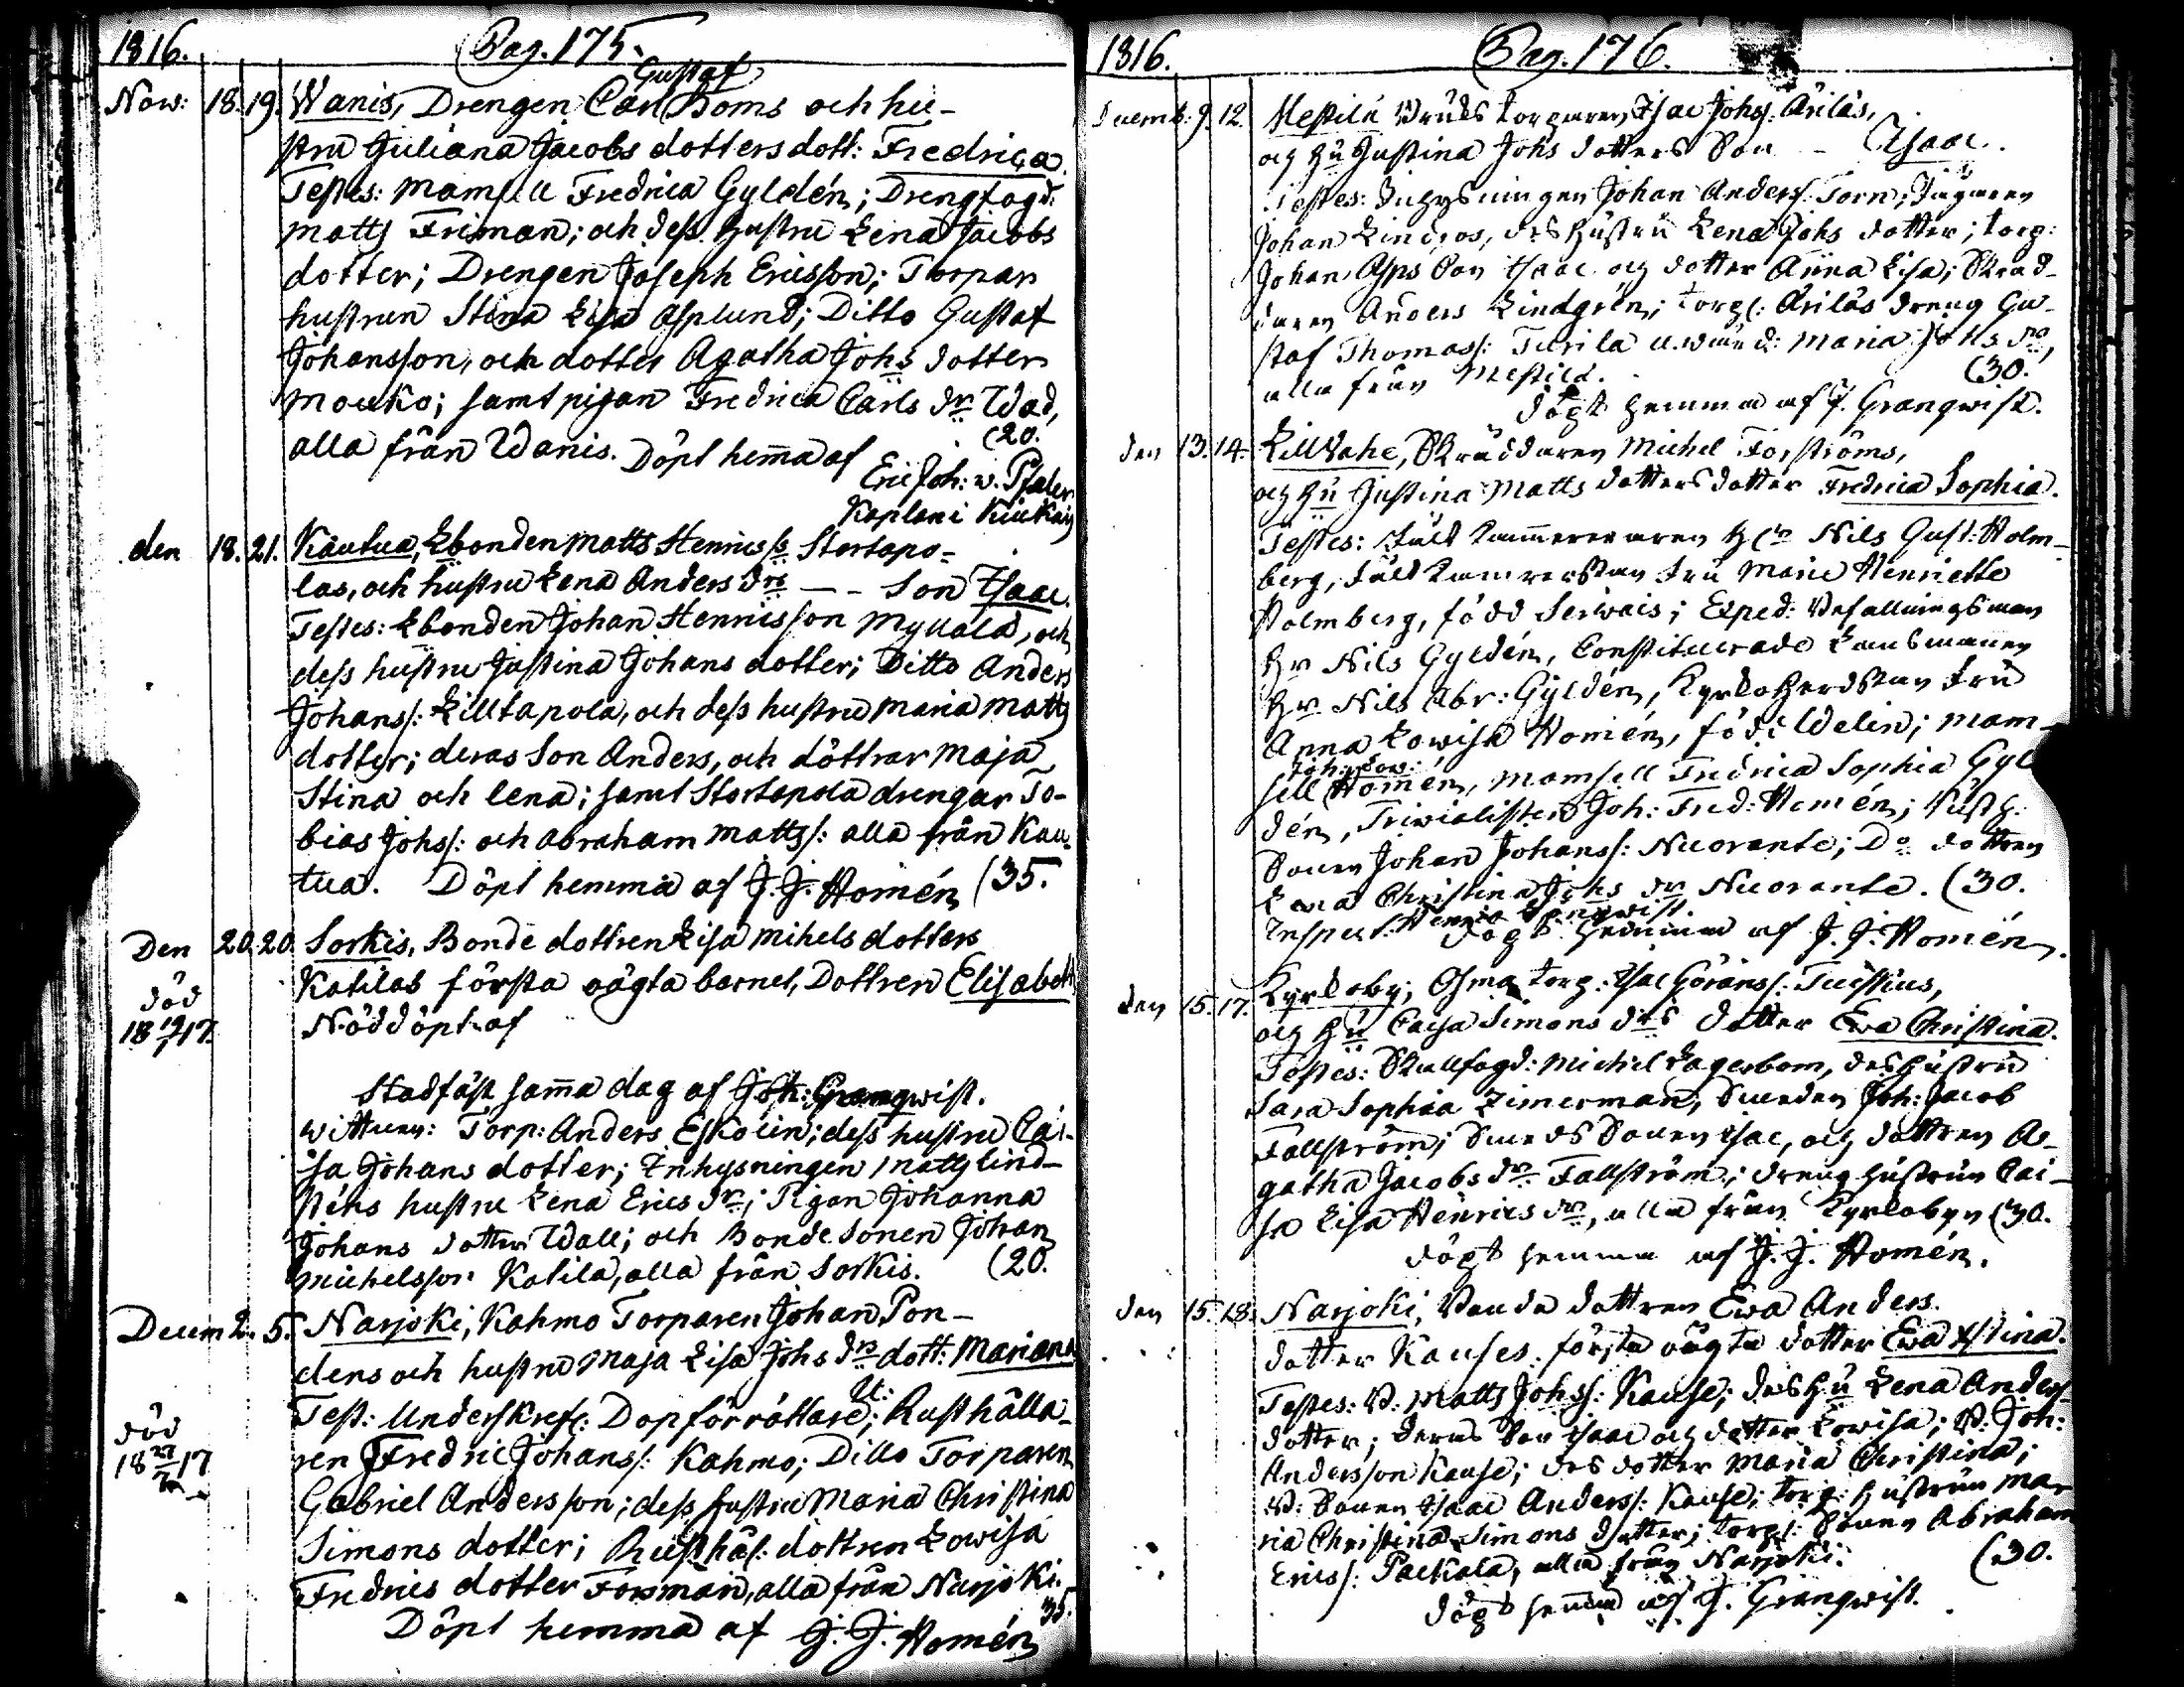 1816.
Pag. 175.
Now: 18. 19. Wanis, Drengen Carl Gustaf Boms och hu-
stru Juliana Jacobs dotters dott: Fredrica
Testes: Mamsell Fredrica Gyldén; Drengfogd:
Matts Friman; och dess hustru Lena Jacobs
dotter; Drengen Joseph Ericsson; Torpar
hustrun Stina Lisa Asplund; Ditto Gustaf
Johansson, och dotter Agatha Johs dotter
Mouko; samt pigan Fredrica Carls dr Wad,
alla från Wanis. (20.
Döpt hema af
Eric Joh: w. Pfaler
Kaplan i Kiukais
den 18. 21. Kautua, Ebonden Matts Henrics ss Stortapo-
las, och hustru Lena Anders drs — - Son Isaac.
Testes: Ebonden Johan Henricsson Myllälä, och
dess hustru Justina Johans dotter; Ditto Anders
Johanss: Lilltapola, och dess hustru Maria Matts
dotter; deras Son Anders, och döttrar Maja
Stina och Lena; samt Stortapola drengar To-
bias Johss: och Abraham Mattss: alla från Kau-
tua. Döpt hemma af J. J. Homén (35.
Den 20. 20. Sorkis, Bonde dottren Lisa Mihels dotters
Katilas första oägta barnet, Dottren Elisabeth
död
18 17.
Nöddöpt af
Stadfäst sama dag af Joh: Granqwist.
Wittnen: Torp: Anders Eskolin; dess hustru Cai-
sa Johans dotter; Inhysningen Matts Lind-
sténs hustru Lena Erics dr; Pigan Johanna
Johans dotter Wall; och Bonde Sonen Johan
Michelsson Katila, alla från Sorkis. (20.
Decem 2. 5. Narjoki, Kahmo Torparen Johan Pon-
dens och hustru Maja Lisa Johs drs dott: Mariana
Test: Underskrefl: Dopförrättare; Rusthålla-
död
18 17
ren Fredric Johanss: Kahmo; Ditto Torparen
Gabriel Andersson; dess hustru Maria Christina
Simons dotter; Rusthål: dottren Lowisa
Fredrics dotter Forsman, alla från Narjoki.
35.
Döpt hemma af J. J. Homén
1816.
Pag. 176.
Decemb: 9. 12. Mestilä Bruks torparen Isac Johss: Arilas,
och hu Justina Johs dotters Son - Isaac.
Testes: Inhysningen Johan Anderss: Torn; Ingaren
Johan Lindros, des hustru Lena Johs dotter; torp:
Johan Asps Son Isaac och dotter Anna Lisa; Skräd-
daren Anders Lindgrén; torp: Arilas dreng Gu-
staf Thomass: Turila Maria Johs dr,
alla från Mestilä. (30.
döpt hemma af J. Granqwist.
den 13. 14. Lillvahe, Skräddaren Michel Forströms,
och hu Justina Matts dotters dotter Fredrica Sophia.
Testes: Fält Kammereraren Hr Nils Gust: Holm-
berg, Fält Kamrerskan Fru Marie Henriette
Holmberg, född Serwais; Exped: Befallningsman
Hr Nils Gyldén, Constituerade Länsmannen
Hr Nils Abr: Gyldén, Kyrkoherdskan Fru
Anna Lowisa Homén, född Idelin; Mam-
sell Joh: Low: Homén, Mamsell Fredrica Sophia Gyl
dén, Trivialisten Joh: Fred: Homén; Rusth:
Sonen Johan Johanss: Nuorante; Do dottren
Lena Christina Johs dr Nuorante. (30.
Inspect: Henric
döpt hemma af J. J. Homén.
den 15. 17. Kyrkoby, Osma torp: Isac Göranss: Tuissius,
och hu Caisa Simons drs dotter Ewa Christina.
Testes: Skallfogd: Michel Lagerbom, des hustru
Sara Sophia Zimerman; Smeden Joh: Jacob
Fallström; Smeds Sonen Isac, och dottren A-
gatha Jacobs dr Fallström; dreng hustrun Cai-
sa Lisa Henrics dr, alla från Kyrkobyn (30.
döpt hemma af J. J. Homén.
den 15. 18. Narjoki, Bonde dottren Ewa Anders
dotter Kauses första oägta dotter Ewa Xstina.
Testes: B: Matts Johss: Kause; des hu Lena Anders
dotter; deras Son Isaac och dotter Lowisa; B: Joh:
Andersson Kause; des dotter Maria Christina;
B: Sonen Isaac Anderss: Kause; torp: hustrun Ma-
ria Christina Simons dotter; torp: Sonen Abraham
Ericss: Packala, alla från Narjoki. (30.
döpt hemma af J. Granqwist.